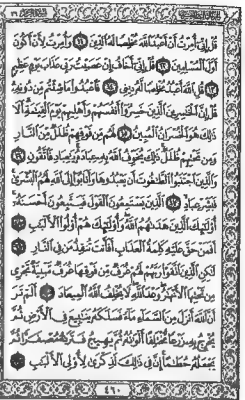 قُلْ إِنِّىٓ أُمِرْتُ أَنْ أَعْبُدَ ٱللَّهَ مُخْلِصًا لَّهُ ٱلدِّينَ ١١ وَأُمِرْتُ لِأَنْ أَكُونَ
أَوَّلَ ٱلْمُسْلِمِينَ ١٢ قُلْ إِنِّىٓ أَخَافُ إِنْ عَصَيْتُ رَبِّى عَذَابَ يَوْمٍ عَظِيمٍ
١٣ قُلِ ٱللَّهَ أَعْبُدُ مُخْلِصًا لَّهُۥ دِينِى ١٤ فَٱعْبُدُوا۟ مَا شِئْتُم مِّن دُونِهِۦ
قُلْ إِنَّ ٱلْخَٰسِرِينَ ٱلَّذِينَ خَسِرُوٓا۟ أَنفُسَهُمْ وَأَهْلِيهِمْ يَوْمَ ٱلْقِيَٰمَةِ أَلَا
ذَٰلِكَ هُوَ ٱلْخُسْرَانُ ٱلْمُبِينُ ١٥ لَهُم مِّن فَوْقِهِمْ ظُلَلٌ مِّنَ ٱلنَّارِ
وَمِن تَحْتِهِمْ ظُلَلٌ ذَٰلِكَ يُخَوِّفُ ٱللَّهُ بِهِۦ عِبَادَهُۥ يَٰعِبَادِ فَٱتَّقُونِ ١٦
وَٱلَّذِينَ ٱجْتَنَبُوا۟ ٱلطَّٰغُوتَ أَن يَعْبُدُوهَا وَأَنَابُوٓا۟ إِلَى ٱللَّهِ لَهُمُ ٱلْبُشْرَىٰ
فَبَشِّرْ عِبَادِ ١٧ ٱلَّذِينَ يَسْتَمِعُونَ ٱلْقَوْلَ فَيَتَّبِعُونَ أَحْسَنَهُۥٓ
أُو۟لَٰٓئِكَ ٱلَّذِينَ هَدَىٰهُمُ ٱللَّهُ وَأُو۟لَٰٓئِكَ هُمْ أُو۟لُوا۟ ٱلْأَلْبَٰبِ ١٨
أَفَمَنْ حَقَّ عَلَيْهِ كَلِمَةُ ٱلْعَذَابِ أَفَأَنتَ تُنقِذُ مَن فِى ٱلنَّارِ ١٩
لَٰكِنِ ٱلَّذِينَ ٱتَّقَوْا۟ رَبَّهُمْ لَهُمْ غُرَفٌ مِّن فَوْقِهَا غُرَفٌ مَّبْنِيَّةٌ تَجْرِى
مِن تَحْتِهَا ٱلْأَنْهَٰرُ وَعْدَ ٱللَّهِ لَا يُخْلِفُ ٱللَّهُ ٱلْمِيعَادَ ٢٠ أَلَمْ تَرَ
أَنَّ ٱللَّهَ أَنزَلَ مِنَ ٱلسَّمَآءِ مَآءً فَسَلَكَهُۥ يَنَٰبِيعَ فِى ٱلْأَرْضِ ثُمَّ
يُخْرِجُ بِهِۦ زَرْعًا مُّخْتَلِفًا أَلْوَٰنُهُۥ ثُمَّ يَهِيجُ فَتَرَىٰهُ مُصْفَرًّا ثُمَّ
يَجْعَلُهُۥ حُطَٰمًا إِنَّ فِى ذَٰلِكَ لَذِكْرَىٰ لِأُو۟لِى ٱلْأَلْبَٰبِ ٢١
٤٦٠